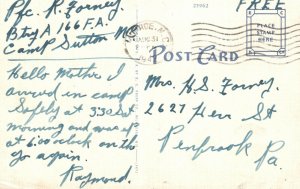 Pfc. R. Forney.
Btry A 166 F.A.
Camp Sutton
FREE
22962
PLACE
STAMP
HERE
POST CARD
Hello Mother I
arrived in camp
Safely at 3:30 St
morning and was up
at 6.00 o'clock on th
go again.
Raymond.
Mrs. H. S. Forney.
2627 Herr St
Penbrook Pa.